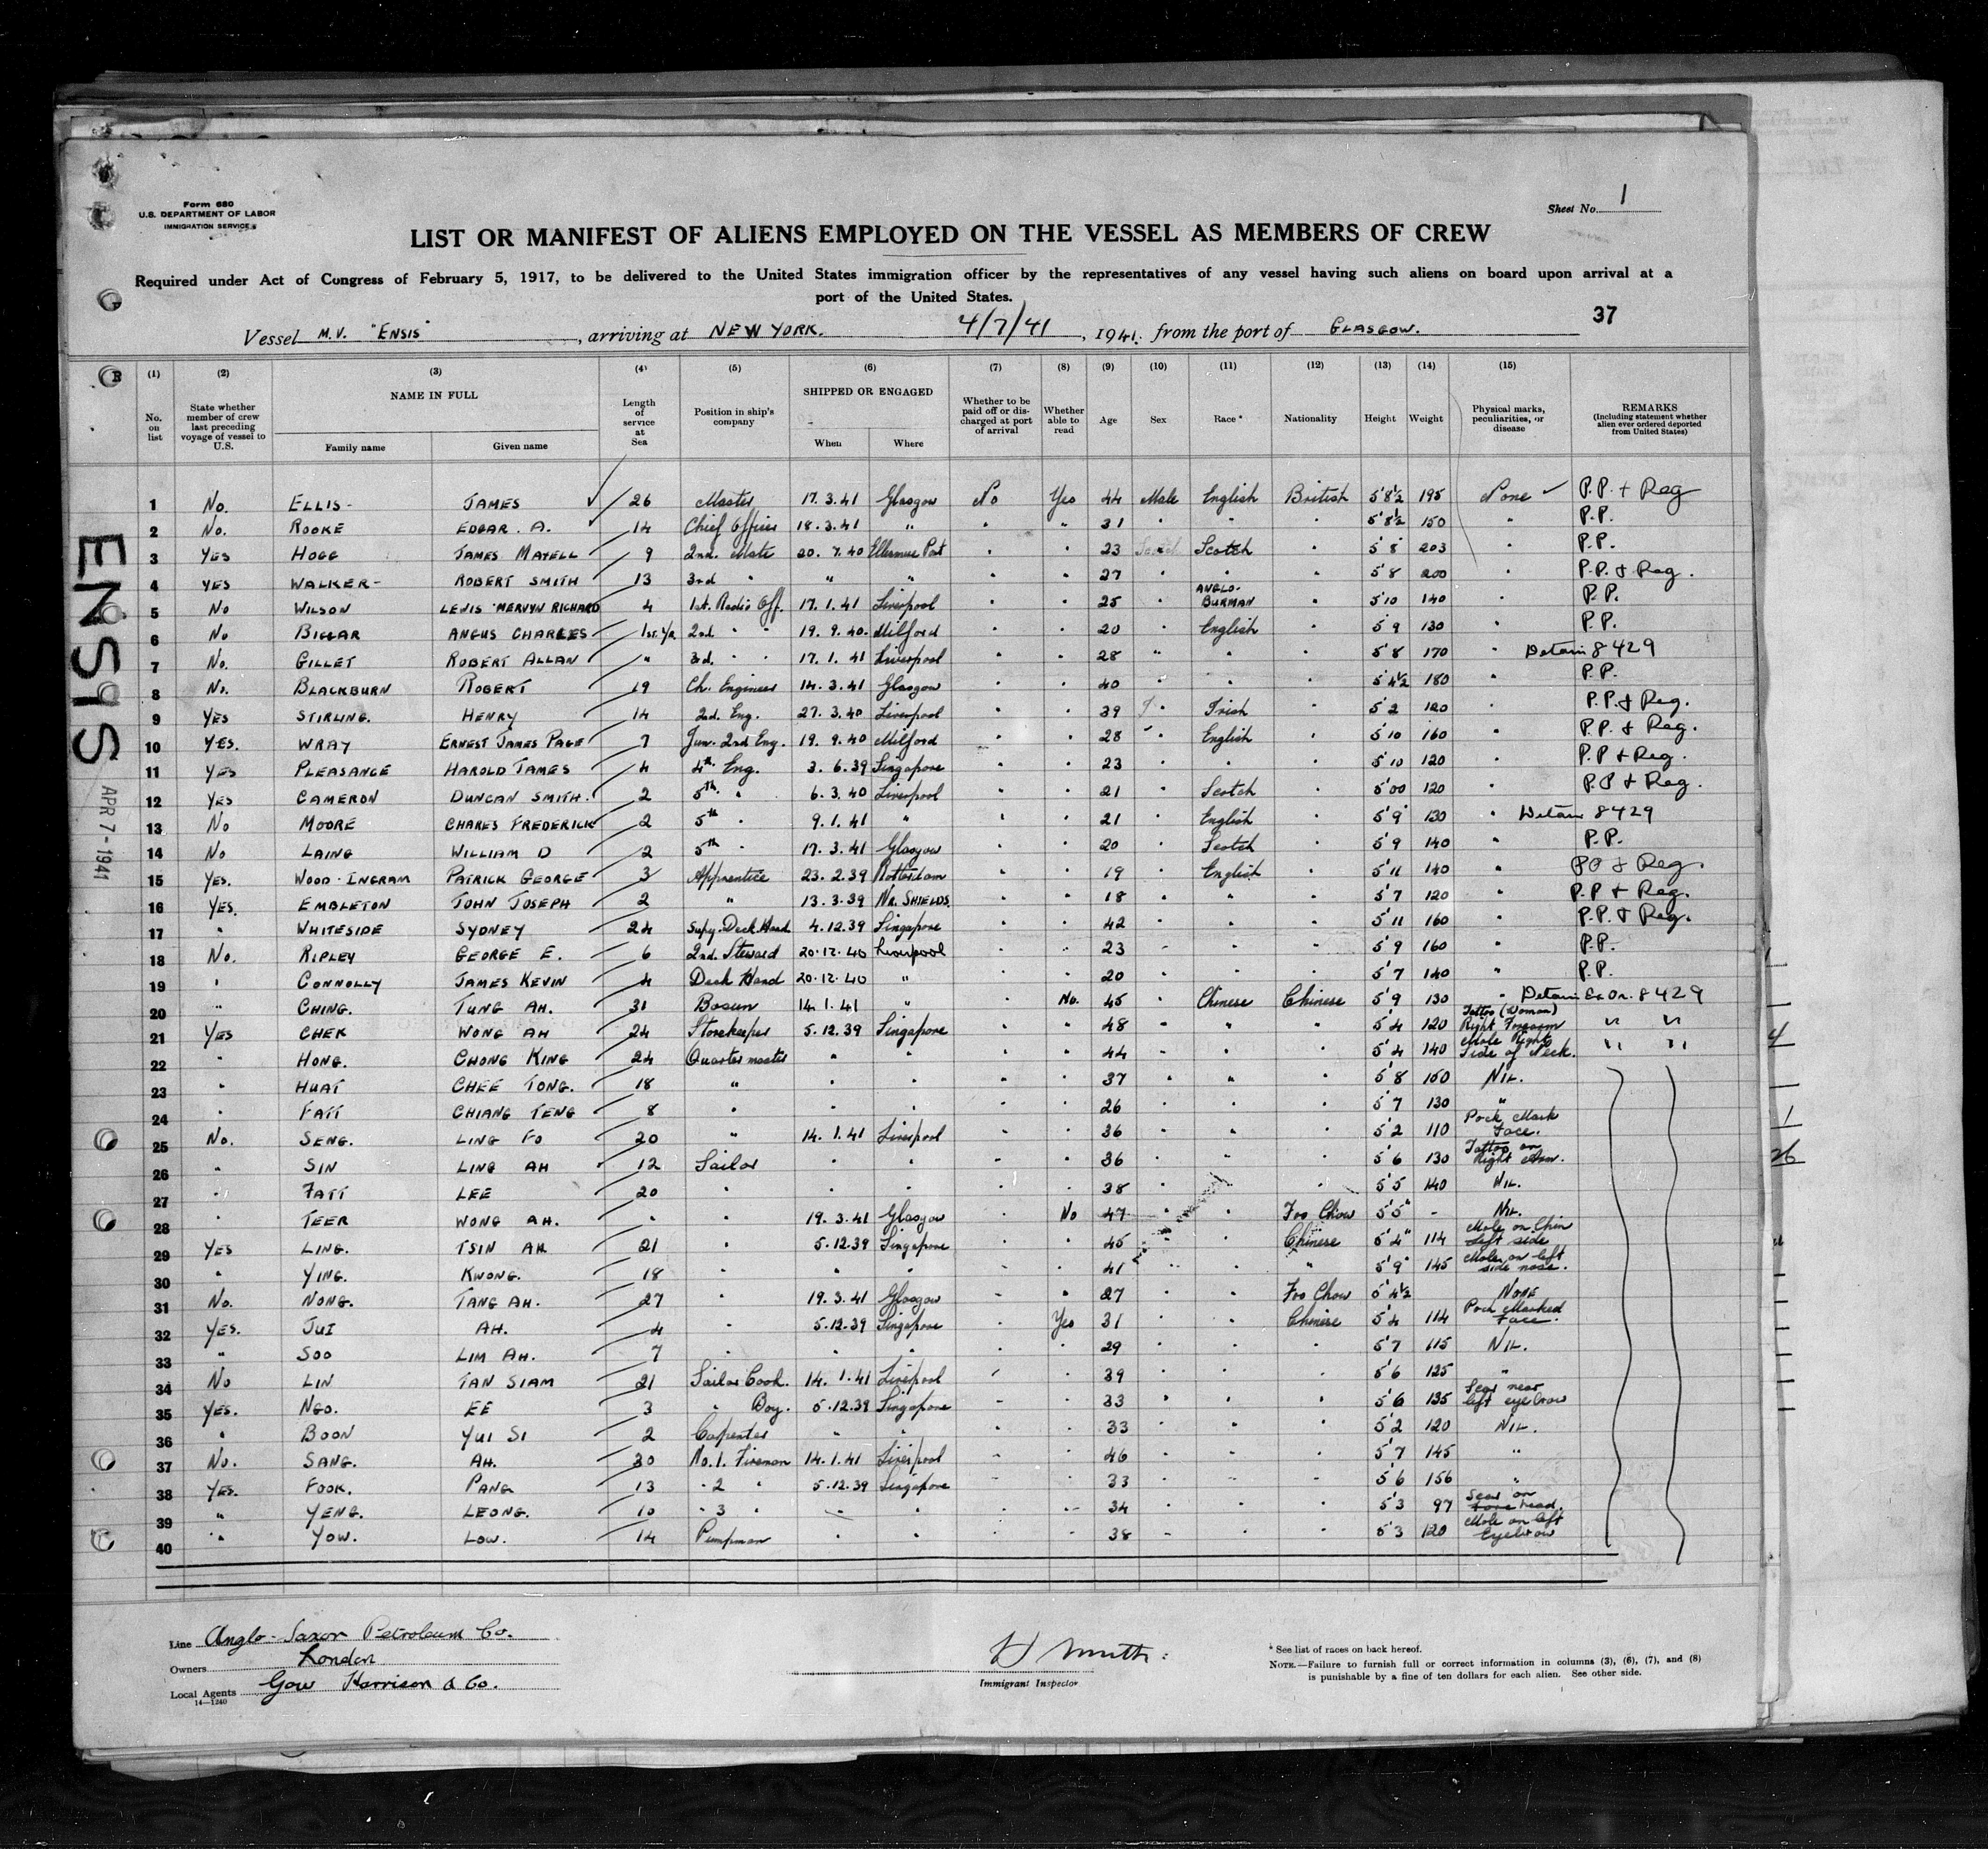 Form 680
U.S. DEPARTMENT OF LABOR
IMMIGRATION SERVICE
Sheet No. 1
LIST OR MANIFEST OF ALIENS EMPLOYED ON THE VESSEL AS MEMBERS OF CREW
Required under Act of Congress of February 5, 1917, to be delivered to the United States immigration officer by the representatives of any vessel having such aliens on board upon arrival at a
port of the United States.
37
Vessel M.V. "ENSIS", arriving at NEW YORK. 4/7/41, 1941. from the port of GLASGOW.
(1) (2) (3) (4) (5) (6) (7) (8) (9) (10) (11) (12) (13) (14) (15)
No. on list
State whether member of crew last preceding voyage of vessel to U.S.
NAME IN FULL
Family name
Given name
Length of service at Sea
Position in ship's company
SHIPPED OR ENGAGED
When
Where
Whether to be paid off or discharged at port of arrival
Whether able to read
Age
Sex
Race *
Nationality
Height
Weight
Physical marks, peculiarities, or disease
REMARKS
(Including statement whether alien ever ordered deported from United States)
1 No. ELLIS- JAMES 26 Master 17.3.41 Glasgow No Yes 44 Male English British 5'8½ 195 None P.P. + Reg
2 No. ROOKE EDGAR. A. 14 Chief Officer 18.3.41 " " " 31 " " " 5'8½ 150 " P.P.
3 YES HOGG JAMES MATELL 9 2nd. Mate 20.7.40 Ellesmere Port " " 23 " Scotch " 5'8 203 " P.P.
4 YES WALKER- ROBERT SMITH 13 3rd " " " " " 27 " " " 5'8 200 " P.P. & Reg.
5 No WILSON LEWIS MERVYN RICHARD 4 1st. Radio Off. 17.1.41 Liverpool " " 25 " ANGLO-BURMAN " 5'10 140 " P.P.
6 No BIGGAR ANGUS CHARLES 1st. Y/R 2nd. " " 19.9.40. Milford " " 20 " English " 5'9 130 " P.P.
7 No. GILLET ROBERT ALLAN " 3rd. " " 17.1.41 Liverpool " " 28 " " " 5'8 170 " Detain 8429
8 No. BLACKBURN ROBERT 19 Ch. Engineer 14.3.41 Glasgow " " 40 " " " 5'4½ 180 " P.P.
9 YES STIRLING. HENRY 14 2nd. Eng. 27.3.40 Liverpool " " 39 " Irish " 5'2 120 " P.P. & Reg.
10 YES. WRAY ERNEST JAMES PAGE 7 Jun. 2nd Eng. 19.9.40 Milford " " 28 " English " 5'10 160 " P.P. & Reg.
11 YES PLEASANCE HAROLD JAMES 4 4th Eng. 3.6.39 Singapore " " 23 " " " 5'10 120 " P.P & Reg.
12 YES CAMERON DUNCAN SMITH. 2 5th. " 6.3.40 Liverpool " " 21 " Scotch " 5'00 120 " P.P & Reg.
13 No MOORE CHARES FREDERICK 2 5th " 9.1.41 " " " 21 " English " 5'9" 130 " Detain 8429
14 No LAING WILLIAM D 2 5th " 17.3.41 Glasgow " " 20 " Scotch " 5'9 140 " P.P.
15 YES. WOOD-INGRAM PATRICK GEORGE 3 Apprentice 23.2.39 Rotterdam " " 19 " English " 5'11 140 " PP & Reg.
16 YES. EMBLETON JOHN JOSEPH 2 " 13.3.39 NR. SHIELDS. " " 18 " " " 5'7 120 " P.P & Reg.
17 " WHITESIDE SYDNEY 24 Supy. Deck Hand 4.12.39 Singapore " " 42 " " " 5'11 160 " P.P. & Reg.
18 No. RIPLEY GEORGE E. 6 2nd. Steward 20.12.40 Liverpool " " 23 " " " 5'9 160 " P.P.
19 " CONNOLLY JAMES KEVIN 4 Deck Hand 20.12.40 " " " 20 " " " 5'7 140 " P.P.
20 " CHING. TUNG AH. 31 Bosun 14.1.41 " " No. 45 " Chinese Chinese 5'9 130 " Detain Ex Or. 8429
21 YES CHEK WONG AH 24 Storekeeper 5.12.39 Singapore " " 48 " " " 5'4 120 Tattoo (Woman) Right Forearm " "
22 " HONG. CHONG KING 24 Quartermaster " " " " 44 " " " 5'4 140 Mole Right Side of Neck. " "
23 " HUAT CHEE TONG. 18 " " " " " 37 " " " 5'8 150 NIL.
24 " FATT CHIANG TENG 8 " " " " " 26 " " " 5'7 130 "
25 No. SENG. LING FO 20 " 14.1.41 Liverpool " " 36 " " " 5'2 110 Pock Mark Face.
26 " SIN LING AH 12 Sailor " " " " 36 " " " 5'6 130 Tattoo on Right Arm.
27 " FATT LEE 20 " " " " " 38 " " " 5'5 140 NIL.
28 " TEER WONG AH. " " 19.3.41 Glasgow " No 47 " " Foo Chow 5'5" - NIL.
29 YES LING. TSIN AH 21 " 5.12.39 Singapore " " 45 " " Chinese 5'4" 114 Mole on Chin left side
30 " YING. KWONG. 18 " " " " " 41 " " " 5'9" 145 Mole on left side nose.
31 No. NONG. TANG AH. 27 " 19.3.41 Glasgow " " 27 " " Foo Chow 5'4½ NONE
32 YES. JUI AH. 4 " 5.12.39 Singapore " Yes 31 " " Chinese 5'4 114 Pock Marked Face.
33 " SOO LIM AH. 7 " " " " " 29 " " " 5'7 115 NIL.
34 No LIN TAN SIAM 21 Sailor Cook. 14.1.41 Liverpool " " 39 " " " 5'6 125 "
35 YES. NGO. EE 3 " Boy. 5.12.39 Singapore " " 33 " " " 5'6 135 Scar near left eyebrow
36 " BOON YUI SI 2 Carpenter " " " " 33 " " " 5'2 120 NIL.
37 No. SANG. AH. 30 No.1. Fireman 14.1.41 Liverpool " " 46 " " " 5'7 145 "
38 YES. FOOK. PANG 13 " 2 " 5.12.39 Singapore " " 33 " " " 5'6 156 "
39 " YENG. LEONG. 10 " 3 " " " " " 34 " " " 5'3 97 Scar on forehead.
40 " YOW. LOW. 14 Pumpman " " " " 38 " " " 5'3 120 Mole on left Eyebrow
ENSIS
APR 7-1941
4
1
26
Line Anglo-Saxon Petroleum Co.
Owners London
Local Agents Gow Harrison & Co.
14—1240
Immigrant Inspector
* See list of races on back hereof.
NOTE.—Failure to furnish full or correct information in columns (3), (6), (7), and (8)
is punishable by a fine of ten dollars for each alien. See other side.